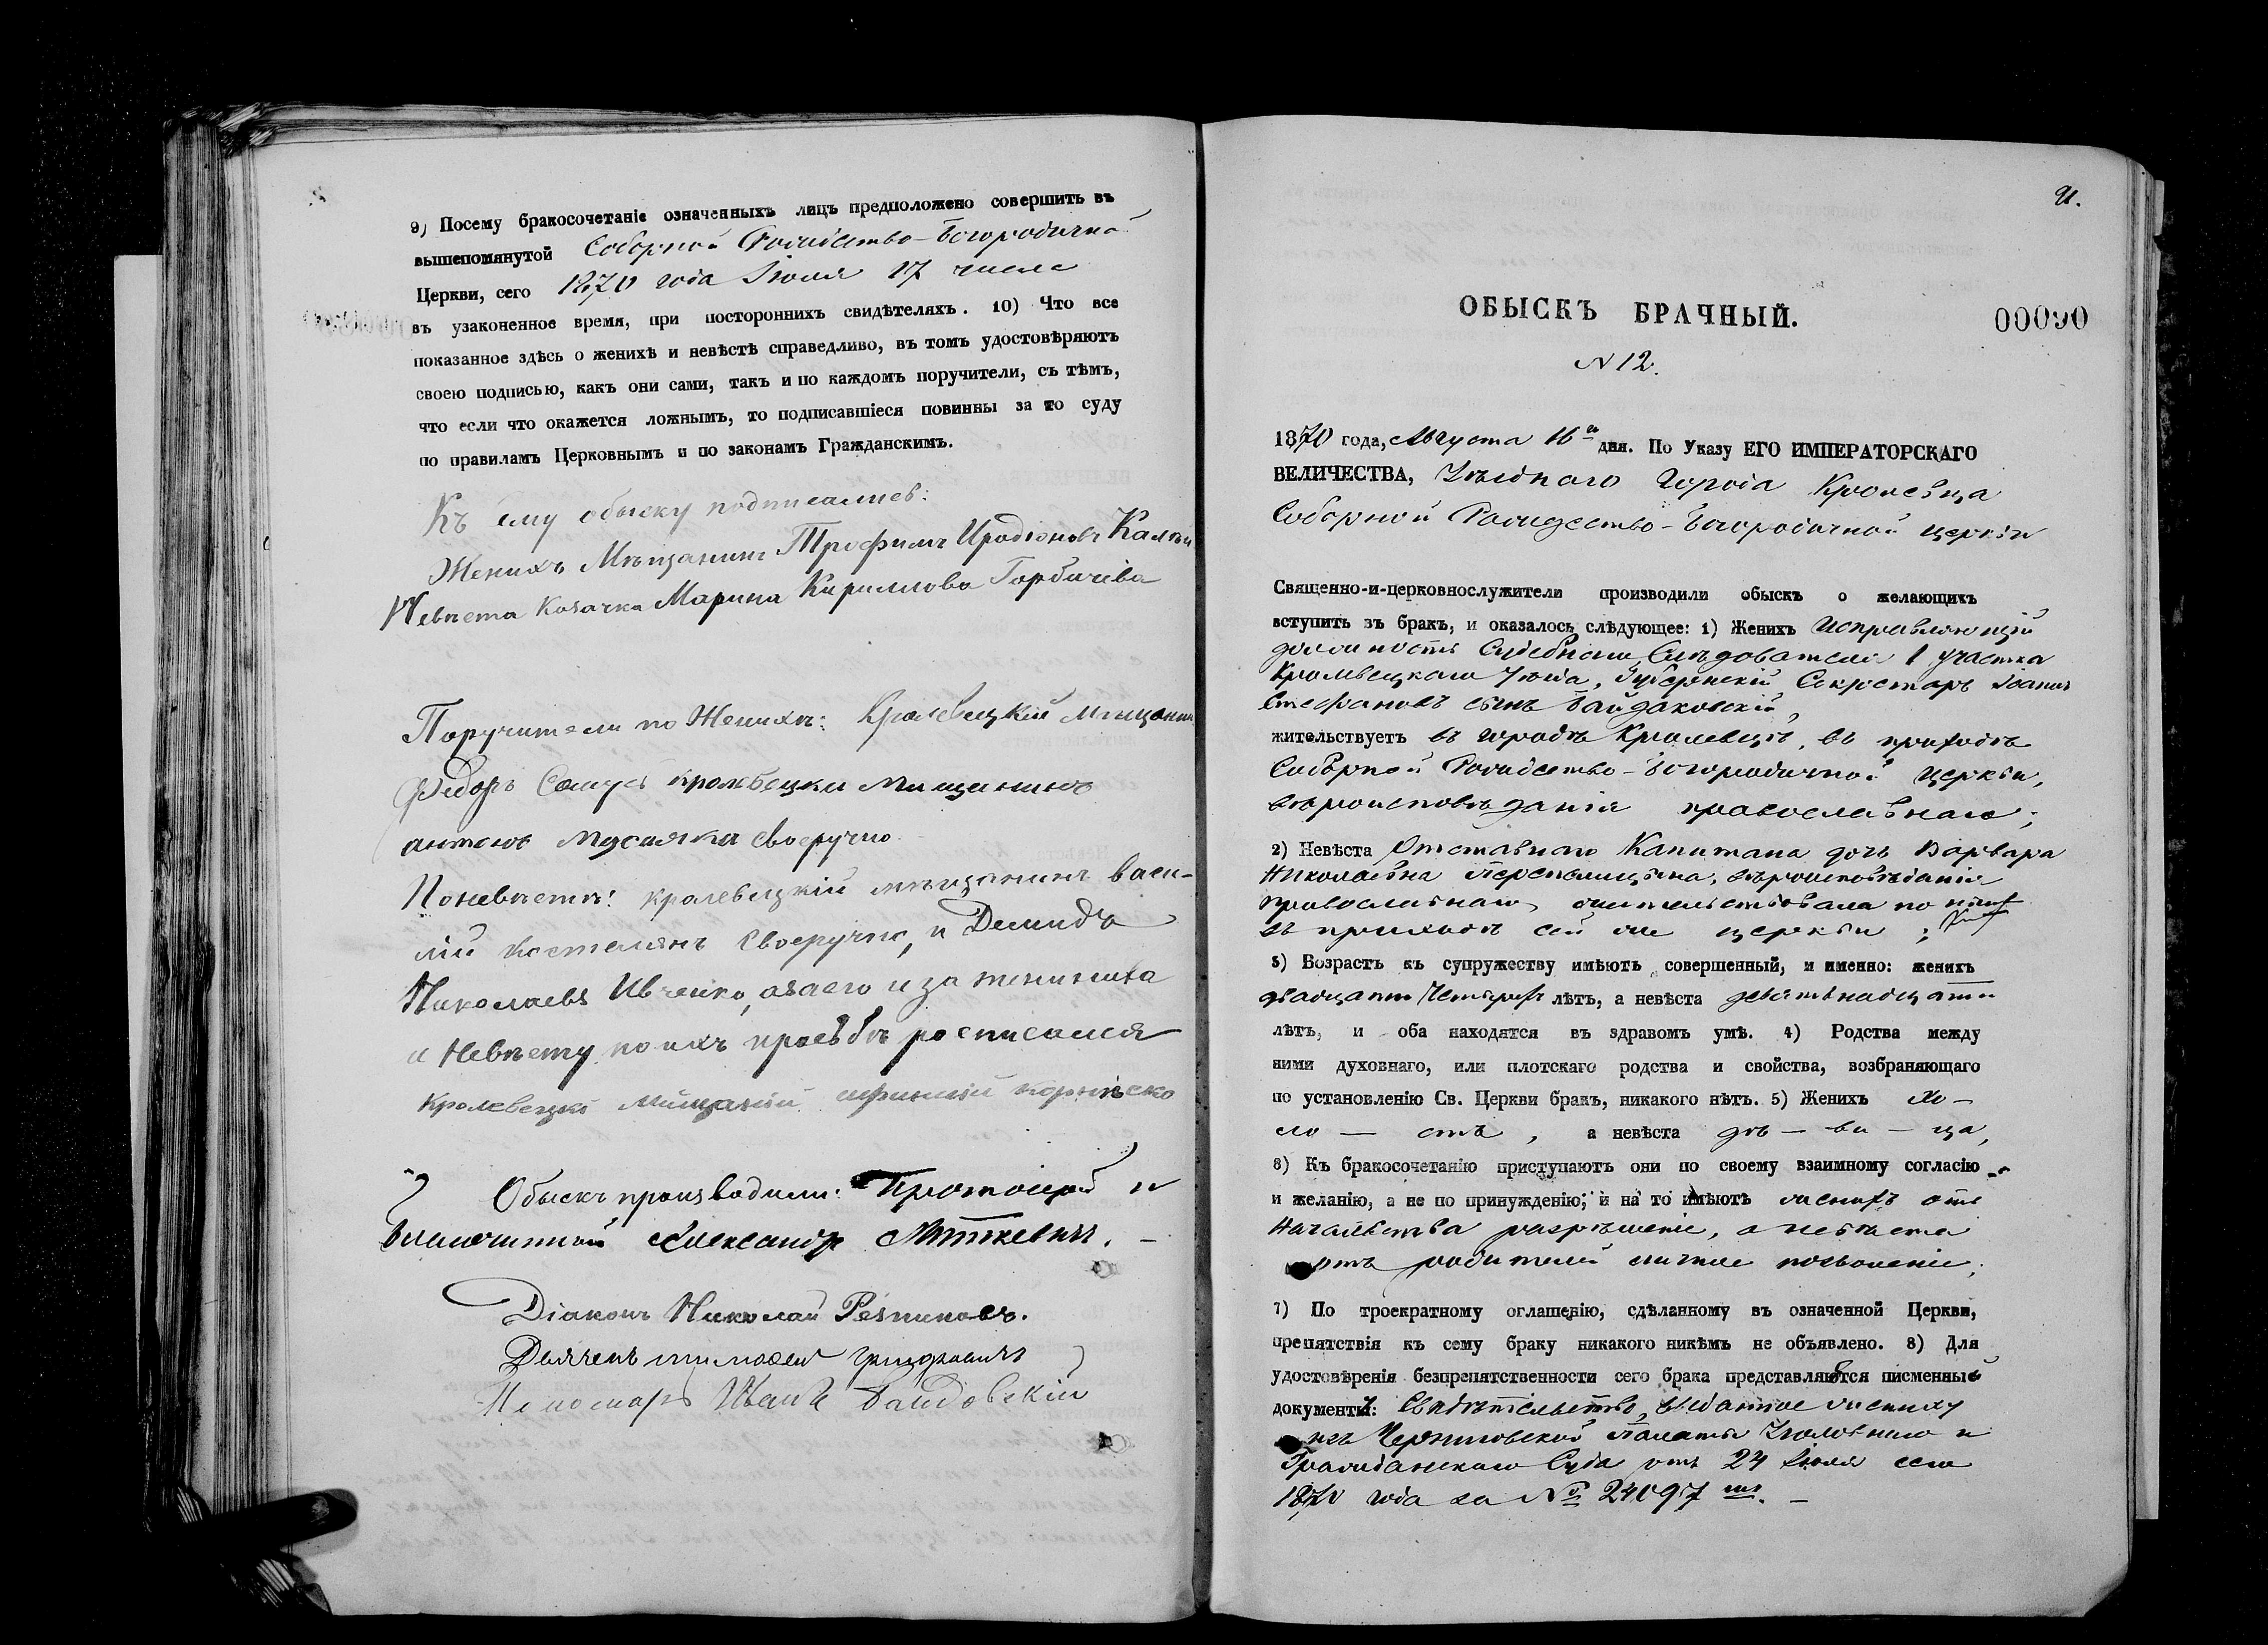 9) Посему бракосочетаніе означенныхъ лицъ предположено совершить въ
вышепомянутой Соборной Рождество-Богородичной
Церкви, сего 1870 года Іюля 17 числа
въ узаконенное время, при постороннихъ свидѣтеляхъ. 10) Что все
показанное здѣсь о женихѣ и невѣстѣ справедливо, въ томъ удостовѣряютъ
своею подписью, какъ они сами, такъ и по каждомъ поручители, съ тѣмъ,
что если что окажется ложнымъ, то подписавшіеся повинны за то суду
по правиламъ Церковнымъ и по законамъ Гражданскимъ.
Къ сему обыску подписались:
Женихъ Мѣщанинъ Трофимъ Иродіоновъ
Невѣста Козачка Марина Кириллова Горбачева
Поручители по Женихѣ: Кролевецкій мѣщанин
Федоръ кролевецки мещининъ
антонъ своеручно
По невѣстѣ: кролевецкій мѣщанинъ Васи-
лій Костелянъ своеручно, и Демидъ
Николаевъ Ивченко, а за него и за жениха
и Невѣсту по ихъ прозьбѣ росписался
Кролевецкі
Обыскъ производили: Протоіерей и
Благочинный Александръ Миткевичъ. —
Діаконъ Николай Резниковъ.
Дьячекъ тимофей
Пономарь Иванъ
21.
ОБЫСКЪ БРАЧНЫЙ.
00090
N 12.
1870 года, Августа 16го дня. По Указу ЕГО ИМПЕРАТОРСКАГО
ВЕЛИЧЕСТВА, Уѣзднаго города Кролевца
Соборной Рождество-Богородичной церкви
Священно-и-церковнослужители производили обыскъ о желающихъ
вступить въ бракъ, и оказалось слѣдующее: 1) Женихъ Исправляющій
должность Судебнаго Слѣдователя 1 участка
Кролевецкаго Уѣзда, Губернскій Секретарь Іоаннъ
Стефановъ сынъ Байдаковскій,
жительствуетъ въ городѣ Кролевцѣ, въ приходѣ
Соборной Рождество-Богородичной церкви,
вѣроисповѣданія православнаго;
2) Невѣста Отставнаго Капитана дочь Варвара
Николаевна вѣроисповѣданія
православнаго, жительствовала по
въ приходѣ сей же церкви;
3) Возрастъ къ супружеству имѣютъ совершенный, и именно: женихъ
двадцати Четырехъ лѣтъ, а невѣста девятнадцати
лѣтъ, и оба находятся въ здравомъ умѣ. 4) Родства между
ними духовнаго, или плотскаго родства и свойства, возбраняющаго
по установленію Св. Церкви бракъ, никакого нѣтъ. 5) Женихъ хо—
ло — стъ, а невѣста дѣ — ви — ца,
6) Къ бракосочетанію приступаютъ они по своему взаимному согласію
и желанію, а не по принужденію; и на то имѣютъ женихъ отъ
Начальства разрѣшеніе, а невѣста
отъ родителей личное позволеніе;
7) По троекратному оглашенію, сдѣланному въ означенной Церкви,
препятствія къ сему браку никакого никѣмъ не объявлено. 8) Для
удостовѣренія безпрепятственности сего брака представляются писменные
документы: Свидѣтельство, выданное жениху
изъ Черниговской Палаты Уголовнаго и
Гражданскаго Суда отъ 24 Іюля сего
1870 года за № 24097 мъ. —